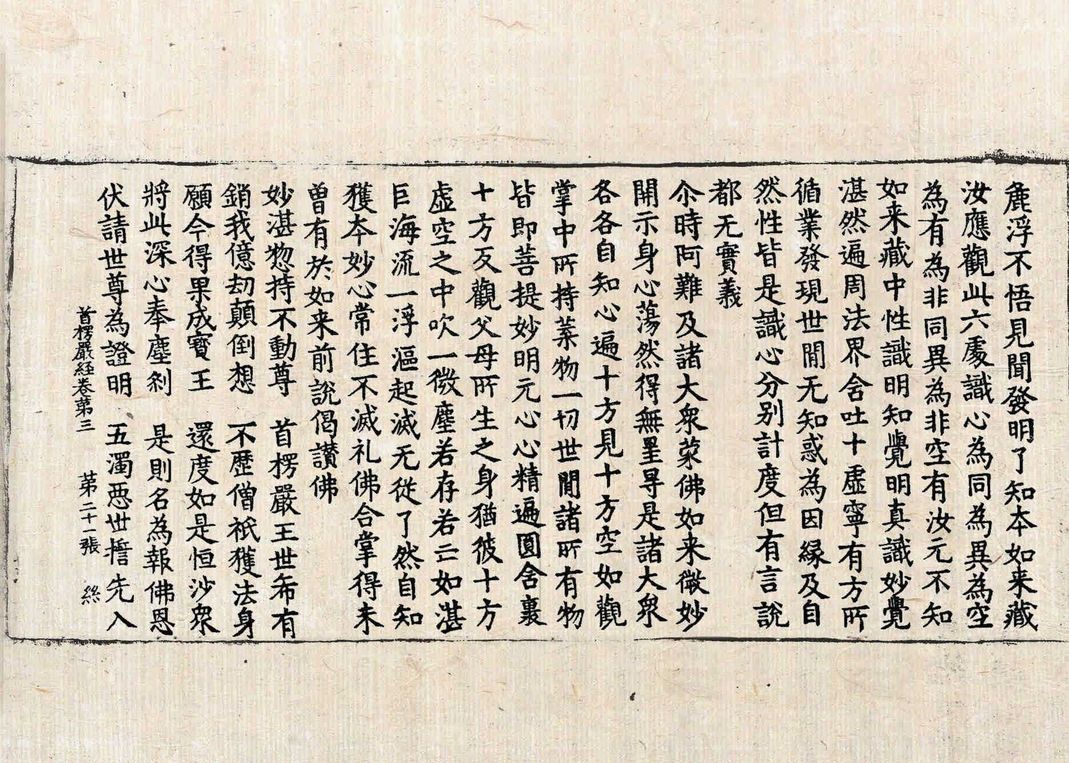 麁浮不悟見聞發明了知本如来藏
汝應觀此六處識心為同為異為空
為有為非同異為非空有汝元不知
如来藏中性識明知覺明真識妙覺
湛然遍周法界含吐十虛寧有方所
循業發現世間无知惑為因緣及自
然性皆是識心分别計度但有言說
都无實義
尒時阿難及諸大衆蒙佛如来微妙
開示身心蕩然得無罣㝵是諸大衆
各各自知心遍十方見十方空如觀
掌中所持葉物一切世間諸所有物
皆即菩提妙明元心心精遍圓含裹
十方反觀父母所生之身猶彼十方
虛空之中吹一微塵若存若亡如湛
巨海流一浮漚起滅无從了然自知
獲本妙心常住不滅礼佛合掌得未
曾有於如来前說偈讃佛
妙湛惣持不動尊　首楞嚴王世希有
銷我億劫顛倒想　不歷僧祇獲法身
願今得果成寶王　還度如是恒沙衆
將此深心奉塵刹　是則名為報佛恩
伏請世尊為證明　五濁惡世誓先入
首楞嚴經卷第三　第二十一張　絲